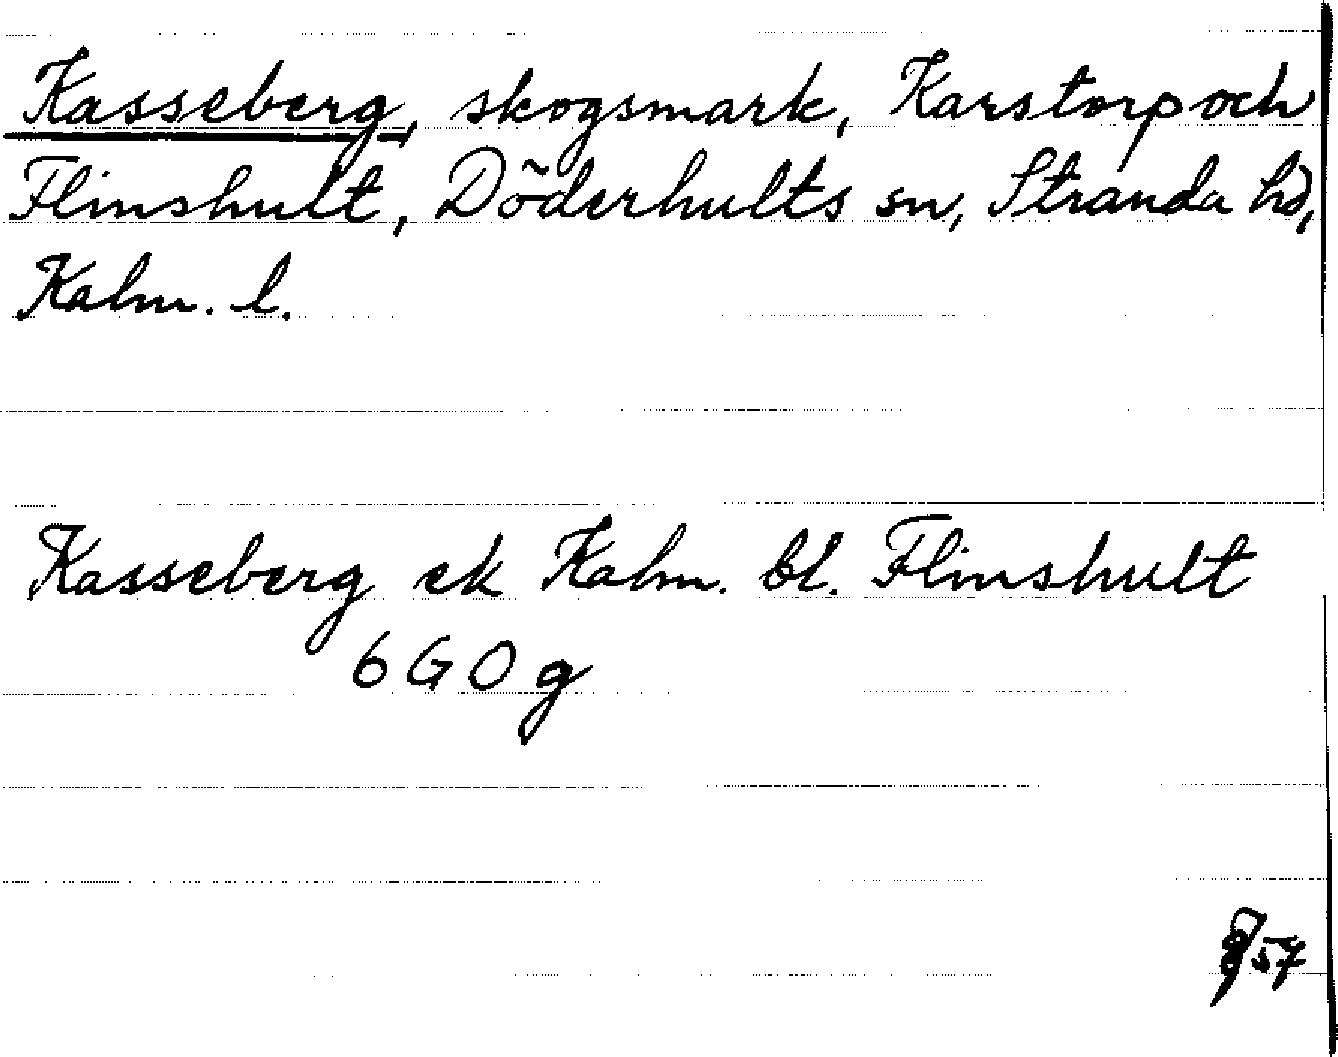 Kasseberg, skogsmark, Karstorp och
Flinshult, Döderhults sn, Stranda hd,
Kalm. l.
Kasseberg ek Kalm. bl. Flinshult
6 G O g
57